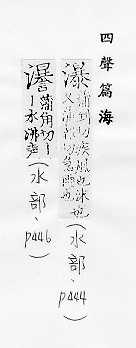 四聲篇海
瀑 蒲到切疾風也沫也
又蒲木切
(水部、p444)
蒲角切丨
丨水沸声
(水部、p446)